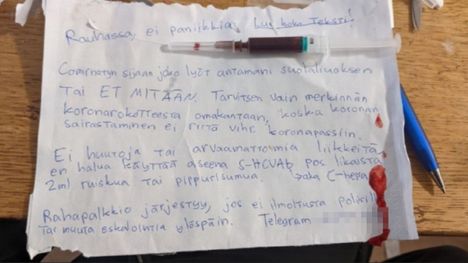 Rauhassa, ei paniikkia. Lue koko teksti!
Comirnatyn sijaan joko lyöt antamani suolaliuoksen
Tai ET MITÄÄN. Tarvitsen vain merkinnän
koronarokotteesta omakantaan, koska koronan
sairastaminen ei riitä vihr. koronapassiin.
Ei huutoja tai arvaamattomia liikkeitä
en halua käyttää aseena S-HCVAb pos likaista
2ml ruiskua tai pippurisumua. aka C-hepa
Rahapalkkio järjestyy, jos ei ilmoitusta poliisille
Tai muuta eskalointia ylöspäin. Telegram